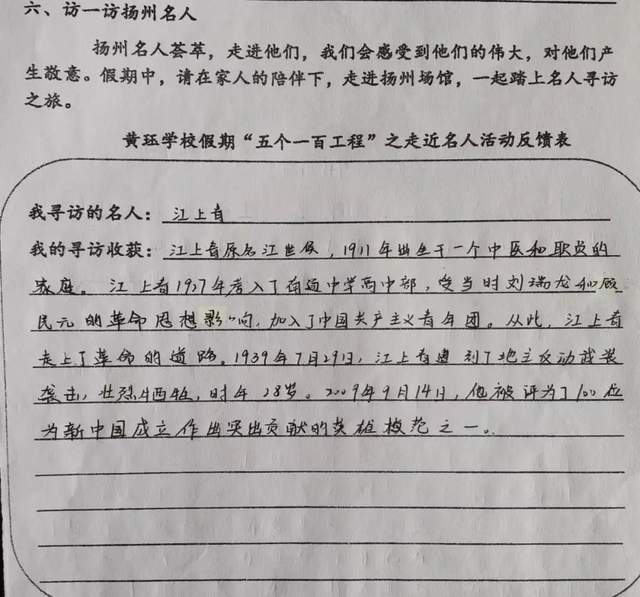 六、访一访扬州名人
扬州名人荟萃，走进他们，我们会感受到他们的伟大，对他们产
生敬意。假期中，请在家人的陪伴下，走进扬州场馆，一起踏上名人寻访
之旅。
黄珏学校假期“五个一百工程”之走近名人活动反馈表
我寻访的名人：江上青
我的寻访收获：江上青原名江世侯，1911年出生于一个中医和职员的
家庭。江上青1927年考入了南通中学高中部，受当时刘瑞龙和顾
民元的革命思想影响，加入了中国共产主义青年团。从此，江上青
走上了革命的道路。1939年7月29日，江上青遇到了地主反动武装
袭击，壮烈牺牲，时年28岁。2009年9月14日，他被评为了100位
为新中国成立作出突出贡献的英雄模范之一。